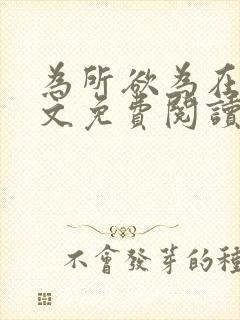 為所欲為在
文免費閱讀
不會發芽的種